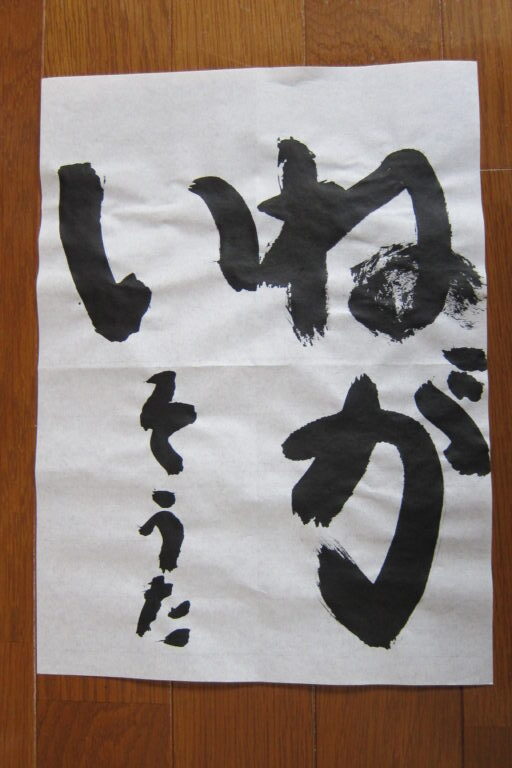 ねが
い
そうた